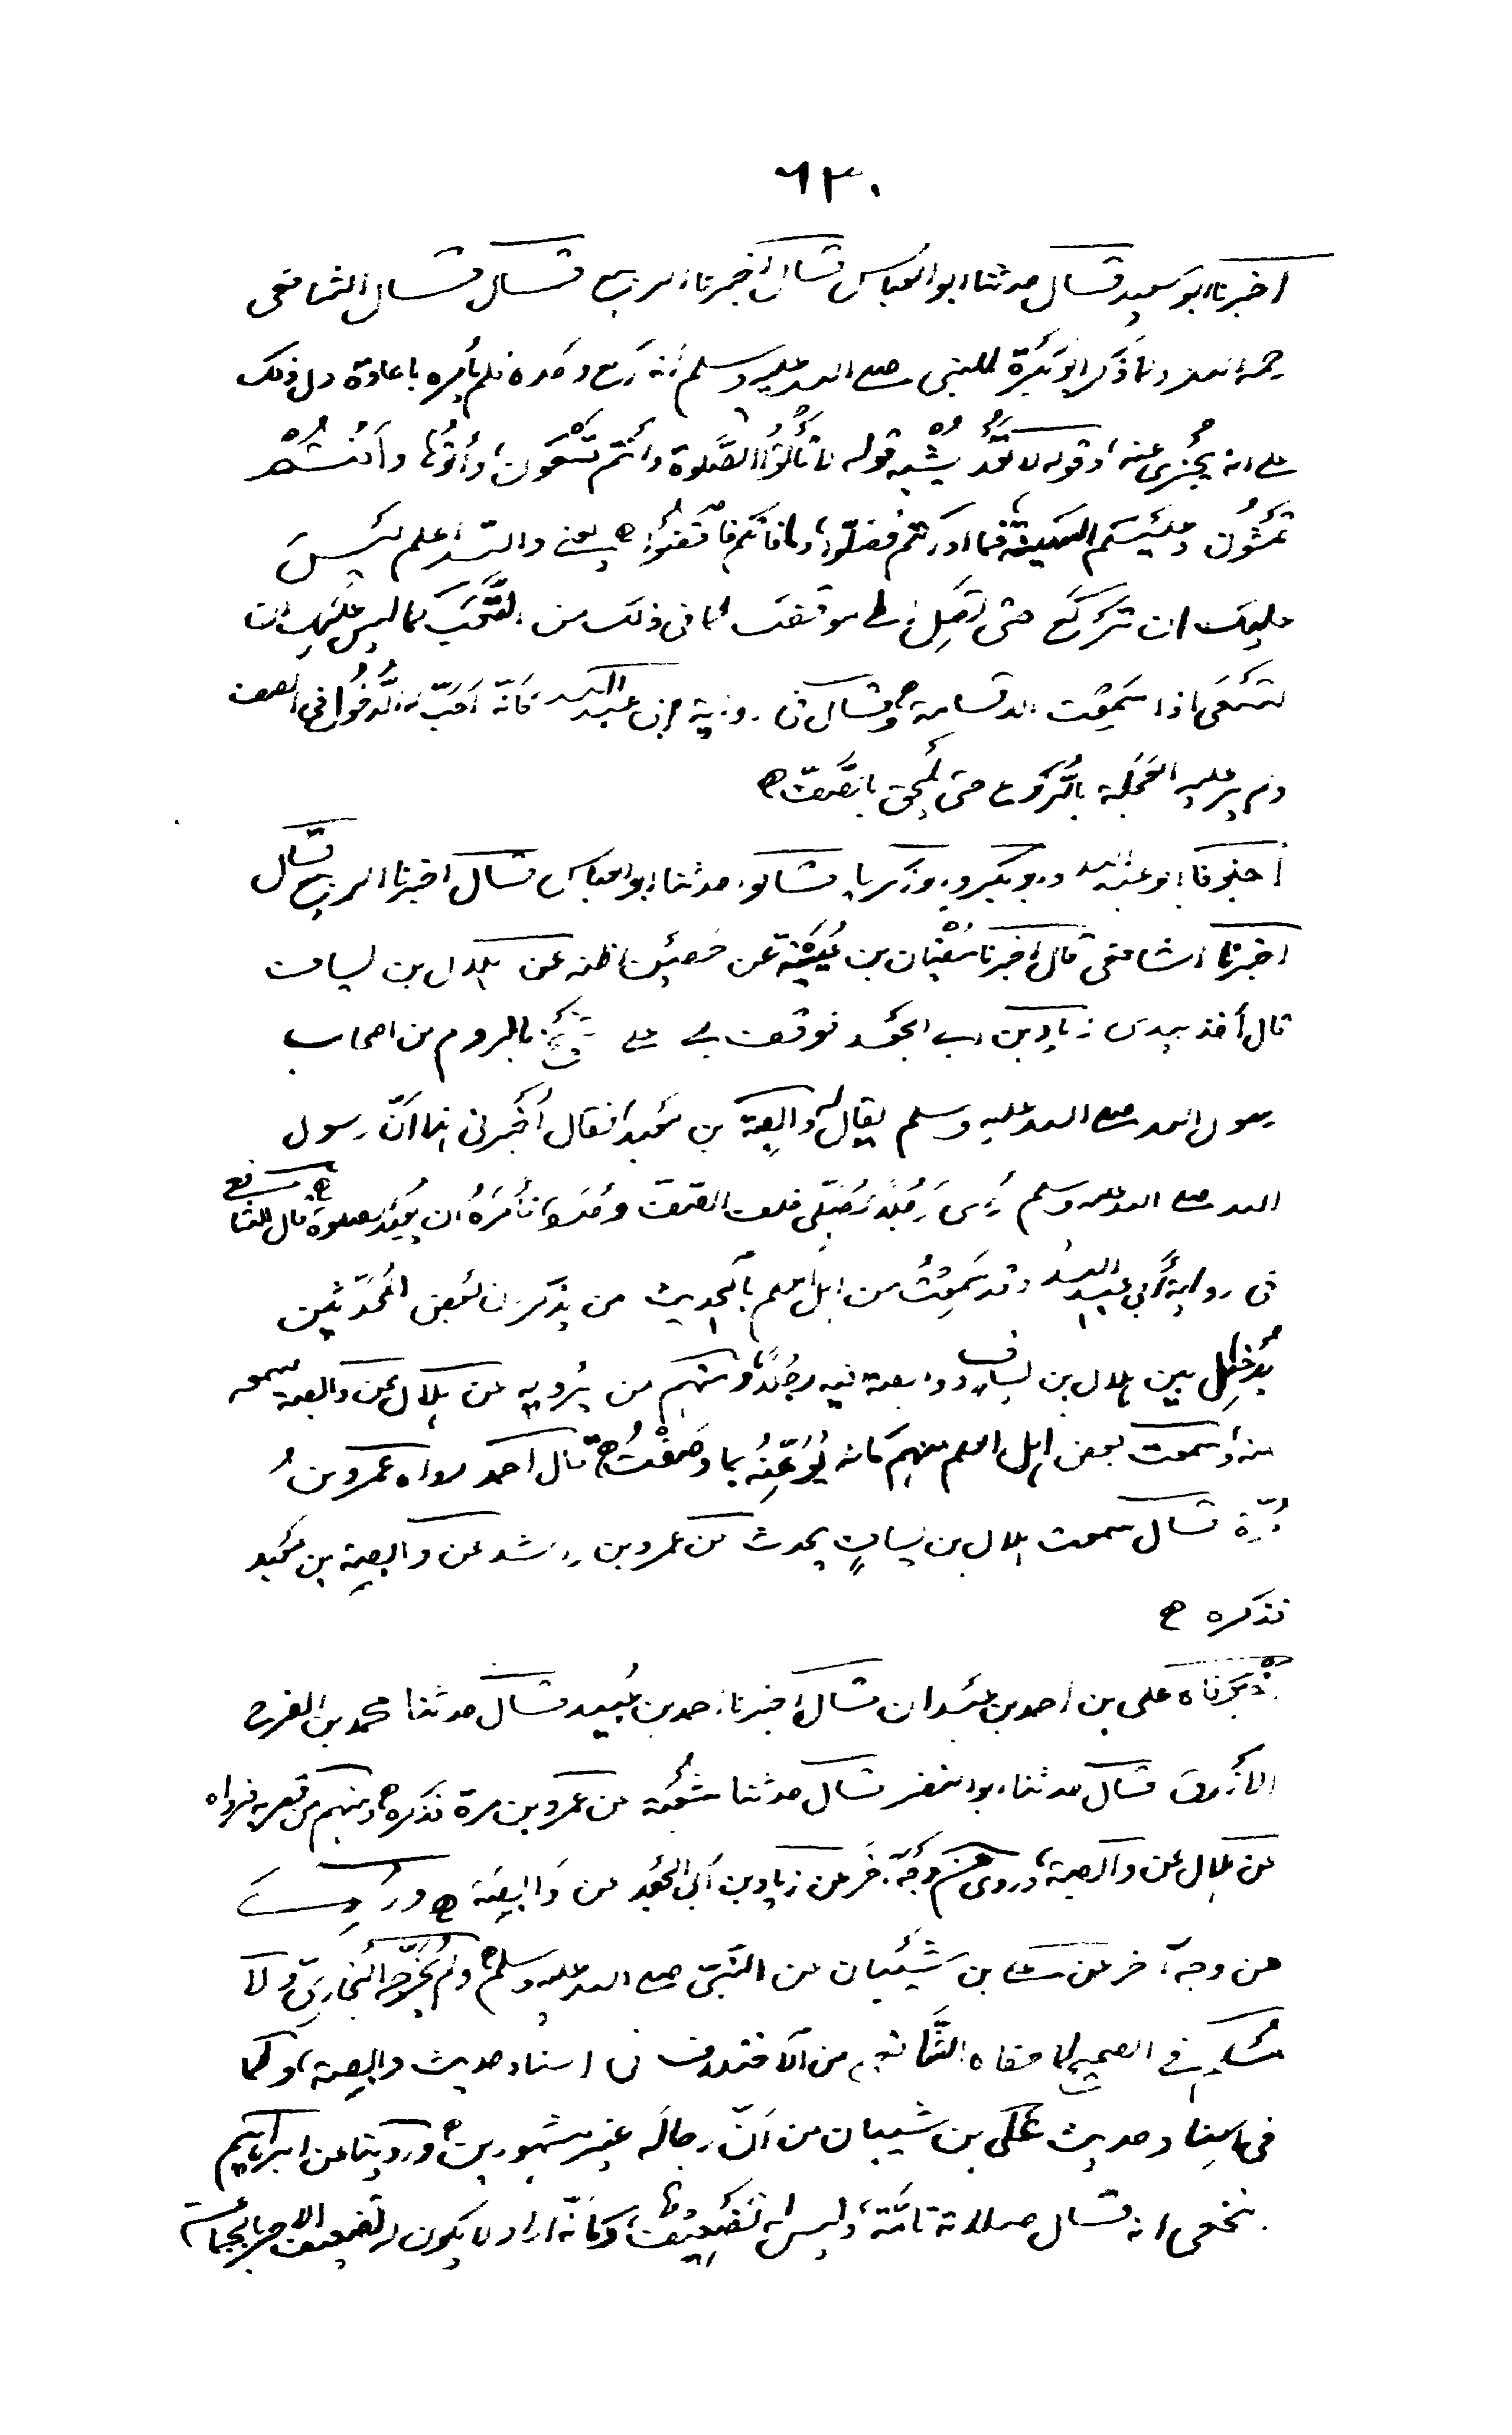 ٦٢٠
اخبرنا ابو سعيد قال حدثنا ابو العباس قال اخبرنا الربيع قال قال الشافعي
رحمه الله وذكر ابو بكرة للنبي صلى الله عليه وسلم أنه ركع وحده فلم يأمره باعادة دل ذلك
على انه يُجزى عنه وقوله لا تَعُد يُشْبِه قوله لا تأتوا الصَّلوة وأنتم تَسْعَون، وأتوها وأنتُمْ
تَمشُون وعليكم السكينة فما ادركتم فصلّوا، وما فاتكم فاقضُوا يعني والله أعلم ليسَ
عليك ان تركع حتى تَصِل الى موقفك لما في ذلك من التَّعَب كما ليس عليك ان
تسعَى اذا سَمِعْت الاقامة وقال في رواية ابي عبد الله كأنّه اَحَبّ له الدخُول في الصف
ولم ير عليه العَجَلة بالرُّكوع حتى يَلحق بالصَّفّ
أخبرنا ابو عبد الله وابو بكر وابو زكريا قالوا حدثنا ابو العباس قال اخبرنا الربيع قال
اخبرنا الشافعي قال اخبرنا سُفْيان بن عُيَيْنة عن حُصَين اظنه عن هلال بن يساف
قال أخذ بيدى زياد بن ابي الجعد فوقف بي على شيخ بالجزيرة من اصحاب
رسول الله صلى الله عليه وسلم يقال له وابِصة بن مَعبد فقال أخبرني هذا أنّ رسول
الله صلى الله عليه وسلم رأى رَجُلاً يُصَلّي خلف الصّفّ وحدَه فأمَرَهُ ان يُعيد الصلوة قال الشافعي
في رواية أبي عبد الله وقد سَمِعْتُ من اهل العلم بالحديث من يذكر أن بعض المُحَدّثين
يُدخِل بين هلال بن يساف ووابصة فيه رجُلاً، ومنهم من يَرْويه عن هلال عن وابصة سمعه
منه، وسمعت بعض اهل العلم منهم كأنه يُوَهِّنُهُ بما وَصَفْتُ قال أحمد رواه عمرو بن
مُرّة قال سمعت هلال بن يساف يحدث عن عمرو بن راشد عن وابصة بن معبد
فذكره
أخْبَرَناه على بن أحمد بن عَبْدان قال اخبرنا احمد بن عُبيد قال حدثنا محمد بن الفرج
الازرق قال حدثنا ابو النضر قال حدثنا شُعْبة عن عمرو بن مرة فذكره ومنهم من قصر به فرواه
عن هلال عن وابصة، وروى من وَجْهٍ آخر عن زياد بن أبي الجَعْد عن وابِصَة وروي
من وجهٍ آخر عن علي بن شَيْبان عن النّبيّ صلى الله عليه وسلم ولم يُخَرِّجْه البُخاريّ ولا
مُسْلم في الصحيح لما حكاه الشّافعي من الاختلاف في اسناد حديث وابصة، ولما
في اِسناد حديث عَلي بن شيبان من اَنّ رجالَه غير مشهورين وروينا عن ابراهيم
النخعي انه قال صلاته تامّة، وليس له تَضْعِيف وكأنّه اراد لا يكون له تضعيف الاجر بالجماعة